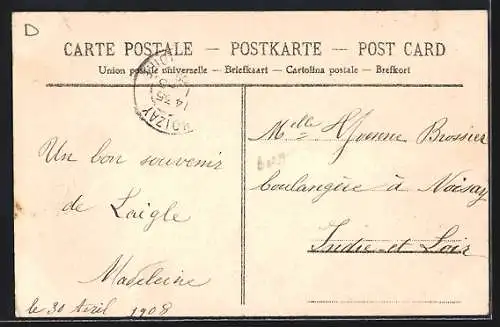 D
CARTE POSTALE — POSTKARTE — POST CARD
Union postale universelle — Briefkaart — Cartolina postale — Brefkort
NOIZAY
14 35
Un bon souvenir
de Laigle
Madeleine
le 30 Avril 1908
Melle Yvonne Brossier
boulangère à Noisay
Indre-et-Loir